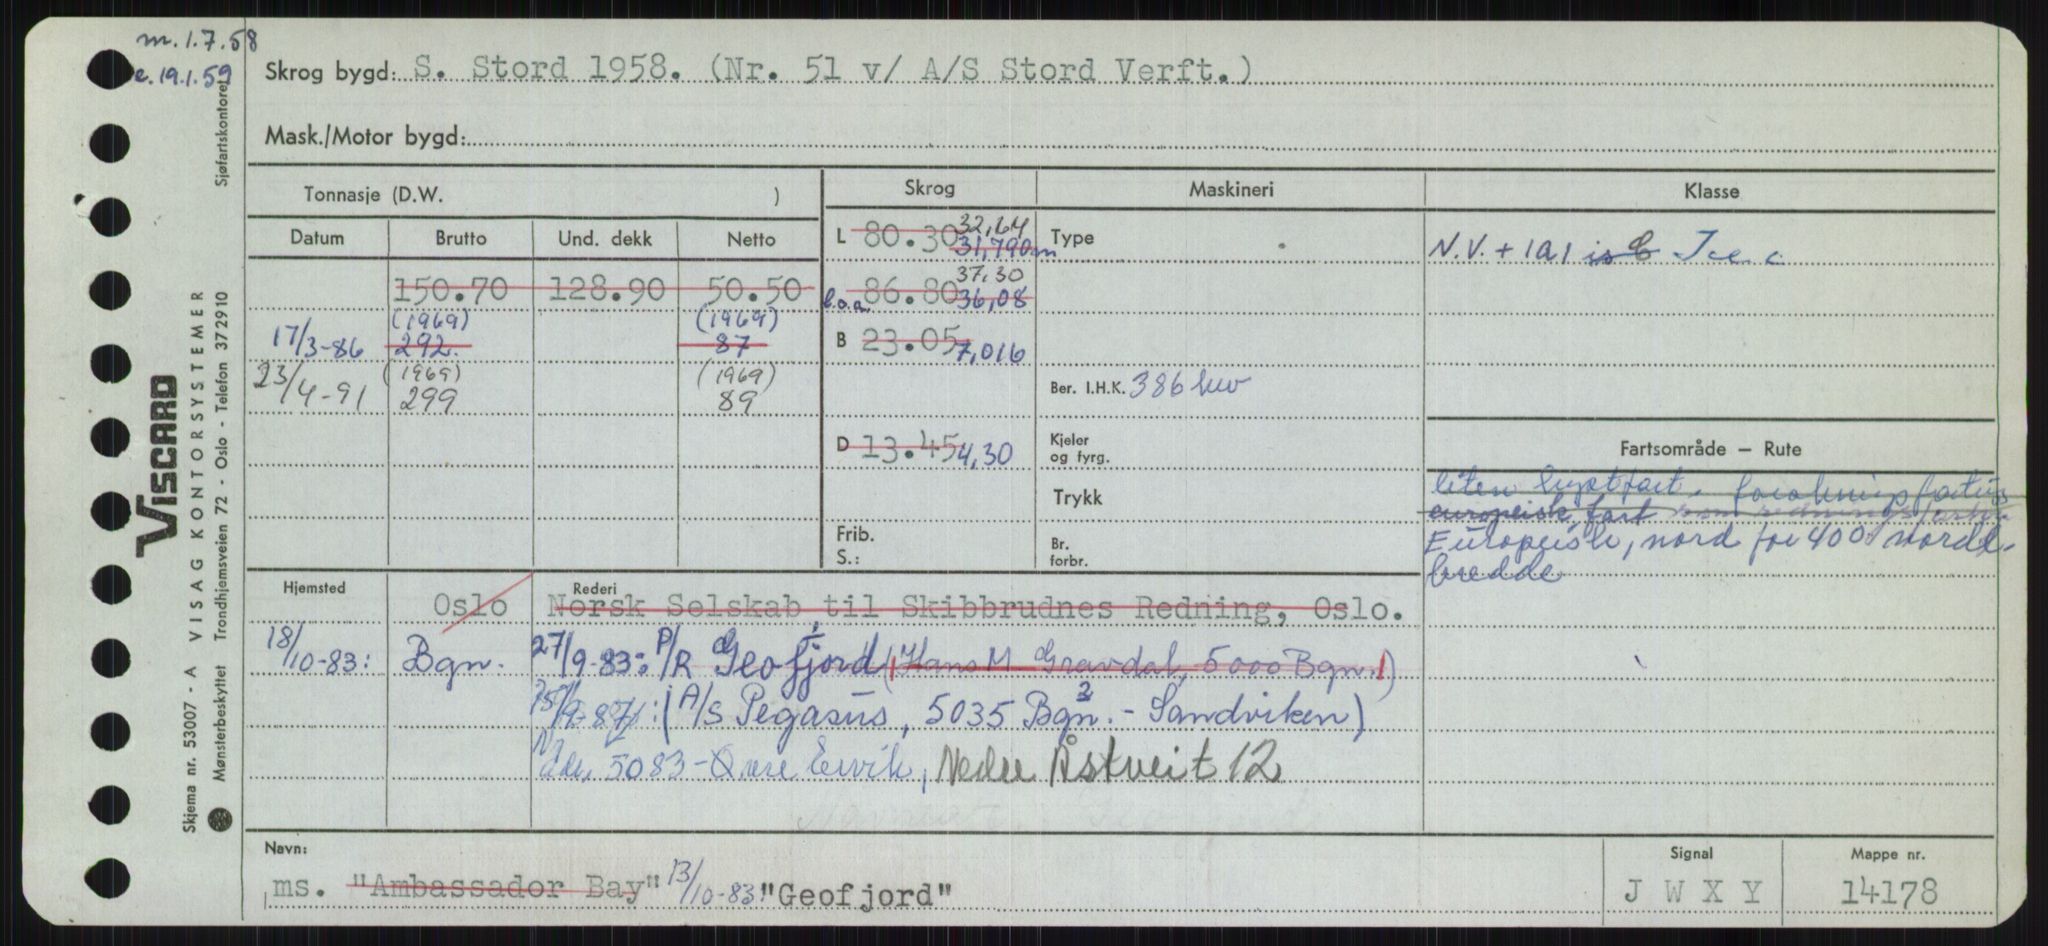 m. 1.7.58
e. 19.1.59
Skrog bygd: S. Stord 1958. (Nr. 51 v/ A/S Stord Verft.)
Mask./Motor bygd:
Tonnasje (D.W. )
Skrog
Maskineri
Klasse
Datum Brutto Und. dekk Netto
L 80.30 32,64
31,790m
Type
N.V. + 1A1 is C Ice c
150.70 128.90 50.50
l.o.a. 86.80 37,30
36,08
(1969) (1969)
17/3-86 292. 87
B 23.05 7,016
(1969) (1969)
23/4-91 299 89
Ber. I.H.K. 386 kw
D 13.45 4,30
Kjeler
og fyrg.
Fartsområde — Rute
Trykk
liten kystfart.
europeisk fart som rednings
Europeisk, nord for 40° nordl.
bredde
Frib.
S.:
Br.
forbr.
Hjemsted
Rederi
Oslo Norsk Selskab til Skibbrudnes Redning, Oslo.
18/10-83: Bgn. 27/9-83: P/R Geofjord (Hans M Gravdal, 5000 Bgn.)
15/9-87: (A/S Pegasus, 5035 Bgn. - Sandviken)
5083 - Øvre Ervik, Nedre Åstveit 12
Navn:
ms. "Ambassador Bay" 13/10-83: "Geofjord"
Signal
J W X Y
Mappe nr.
14178
Skjema nr. 53007 - A VISAG KONTORSYSTEMER
Mønsterbeskyttet Trondhjemsveien 72 - Oslo - Telefon 372910
VISCARD
Sjøfartskontoret